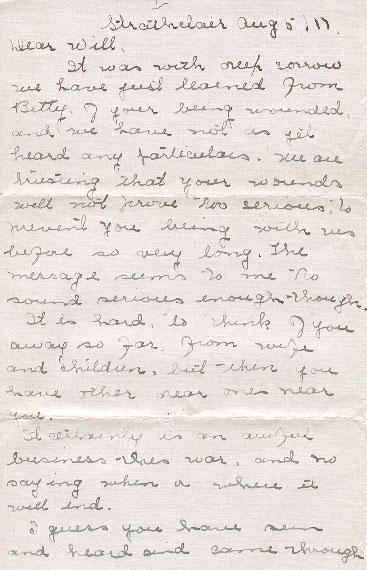 Strathclair Aug 5/17.
Dear Will,
It was with deep sorrow
we have just learned from
Betty, of your being wounded,
and we have not as yet
heard any particulars. We are
trusting that your wounds
will not prove too serious, to
prevent you being with us
before so very long. The
message seems to me to
sound serious enough though.
It is hard, to think of you
away so far, from wife
and children, but then you
have other dear ones near
you.
It certainly is an awful
business this war, and no
saying when or where it
will end.
I guess you have seen
and heard and came through